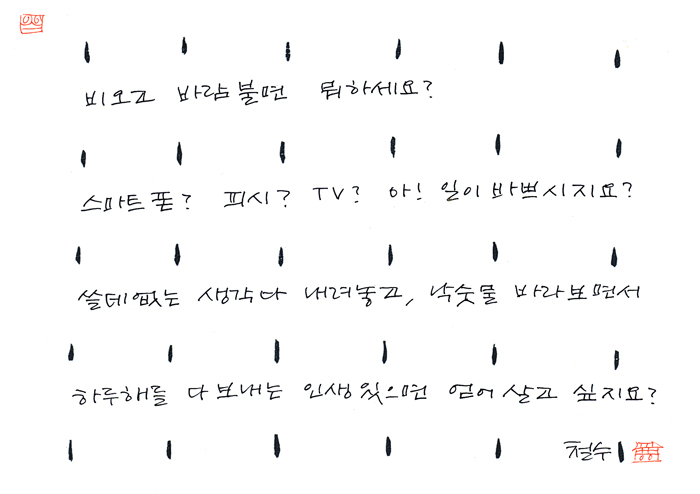 비오고 바람불면 뭐하세요?
스마트폰? 피시? TV? 아! 일이 바쁘시지요?
쓸데없는 생각 다 내려놓고, 낙숫물 바라보면서
하루해를 다 보내는 인생 있으면 얻어 살고 싶지요?
철수